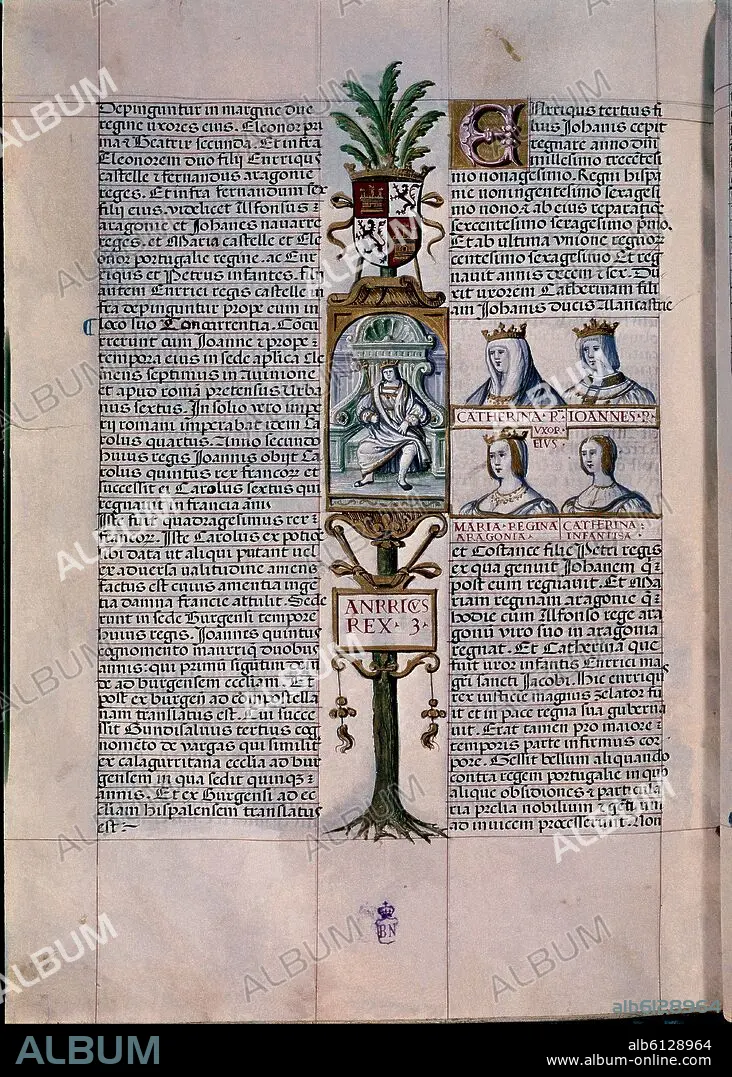 Depinguntur in margine due
regine uxores eius. Eleonor pri
ma & Beatrix secunda. Et infra
Eleonorem duo filij Enrriqus
castelle & fernandus aragonie
reges. Et infra fernandum sex
filij eius. videlicet Alfonsus &
aragonie et Johanes navarre
reges. et Maria castelle et Ele
onor portugalie regine. ac Enr
riqus et Petrus infantes. filij
autem Enrrici regis castelle in
fra depinguntur prope eum in
loco suo Concurrentia. Cocu
rrerunt cum Joanne & prope &
tempora eius in sede aplica cle
mens septimus in Auinione
et apud romā pretensus Urba
nus sextus. In solio vero impe
rij romani imperabat idem Ca
rolus quartus. Anno secundo
huius regis Joannis obijt Ca
rolus quintus rex francorū et
successit ei Carolus sextus qui
regnauit in francia anis
Iste fuit quadragesimus rex &
francorū. Iste Carolus ex potiōe
sibi data ut aliqui putant vel
ex aduersa valitudine amens
factus est cuius amentia inge
tia damna francie attulit. Sede
runt in sede Burgensi tempore
huius regis. Joannes quintus
cognomento maurriq duobus
annis: qui primū sigūtinus in
de ad burgensem eccliam. Et
post ex burgen ad compostella
nam translatus est. Cui succe
ssit Gundisaluus tertius cog
nometo de vargas qui similit
ex calagurritana ecclia ad bur
gensem in qua sedit quinqz
annis. Et ex Burgensi ad ec
cliam hispalensem translatus
est
ANRRICVS
REX · 3 ·
Enrriqus tertius fi
lius Johanis cepit
regnare anno dni
millesimo trecētesi
mo nonagesimo. Regni hispa
nie noningentesimo sexagesi
mo nono & ab eius reparatiōe
sexcentesimo sexagesimo pño.
Et ab ultima vnione regnorū
centesimo sexagesimo Et reg
nauit annis decem & sex. Du
xit vxorem Catherinam fili
am Johanis ducis Alancastrie
CATHERINA · R · IOANNES · R ·
VXOR
EIVS
MARIA · REGINA CATHERINA
ARAGONIA INFANTISA
et Costance filie Petri regis
ex qua genuit Johanem q
post eum regnauit. Et Ma
riam reginam aragonie q
hodie cum Alfonso rege ara
gonū viro suo in aragonia
regnat. Et Catherina que
fuit vxor infantis Enrrici ma
gri sancti Jacobi. Hic enrriqus
rex iusticie magnus zelator fu
it et in pace regna sua guberna
uit. Erat tamen pro maiore &
temporis parte infirmus cor
pore. Gessit bellum aliquando
contra regem portugalie in quo
alique obsidiones & particula
ria prelia nobilium & gentiū
ad inuicem processerunt. Non
BN
ALBUM
alb6128964
ALBUM
alb6128964
www.album-online.com